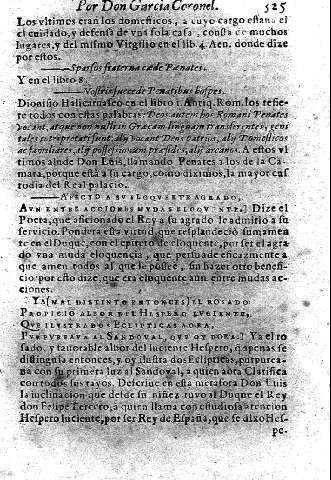 Por Don Garcia Coronel. 525
Los vltimos eran los domesticos, a cuyo cargo estaua el
el cuidado, y defensa de vna sola casa, consta de muchos
lugares, y del mismo Virgilio en el lib. 4. Aen. donde dize
por estos.
Sparsos fraterna cæde Penates.
Y en el libro 8.
Nostris succede Penatibus hospes.
Dionisio Halicarnaseo en el libro 1. Antiq. Rom. los refie-
re todos con estas palabras: Deos autem hos Romani Penates
vocant, atque nonnulli in Græcam linguam transferentes, geni
tales interpretati sunt. alij vocant Deos patrios, alij Domesticos
familiares, alij possessionum præsides, alij arcanos. A estos vl
timos alude Don Luis, llamando Penates a los de la Ca-
mara, porque està a su cargo, como diximos, la mayor cus
todia del Real palacio.
AFECTO A SV ELOQVENTE AGRADO,
AVN ENTRE ACCIONES MVDAS ELOQVENTE.] Dize el
Poeta, que aficionado el Rey a su agrado le admitio a su
servicio. Pondera esta virtud, que resplandeciò sumamen
te en el Duque, con el epiteto de eloquente, por ser el agra
do vna muda eloquencia, que persuade eficazmente a
que amen todos al que le possee, sin hazer otro benefi-
cio: por esto dize, que era eloquente aun entre mudas ac-
ciones.
YA [MAL DISTINTO ENTONCES] EL ROSADO
PROPICIO ALBOR DEL HESPERO LVCIENTE,
QVE ILVSTRA DOS ECLIPTICAS AORA,
PVRPVREAVA AL SANDOVAL, QVE OY DORA.] Ya el ro
sado, y fauorable albor del luciente Hespero, q̃ apenas se
distinguia entonces, y oy ilustra dos Eclipticas, purpurea-
ua con su primera luz al Sandoval, a quien aora Clarifica
con todos sus rayos. Descriue en esta metafora Don Luis
la inclinacion que desde su niñez tuuo al Duque el Rey
don Felipe Tercero, a quien llama con estudiosa atencion
Hespero luciente, por ser Rey de España, que se dixo Hes-
pe-